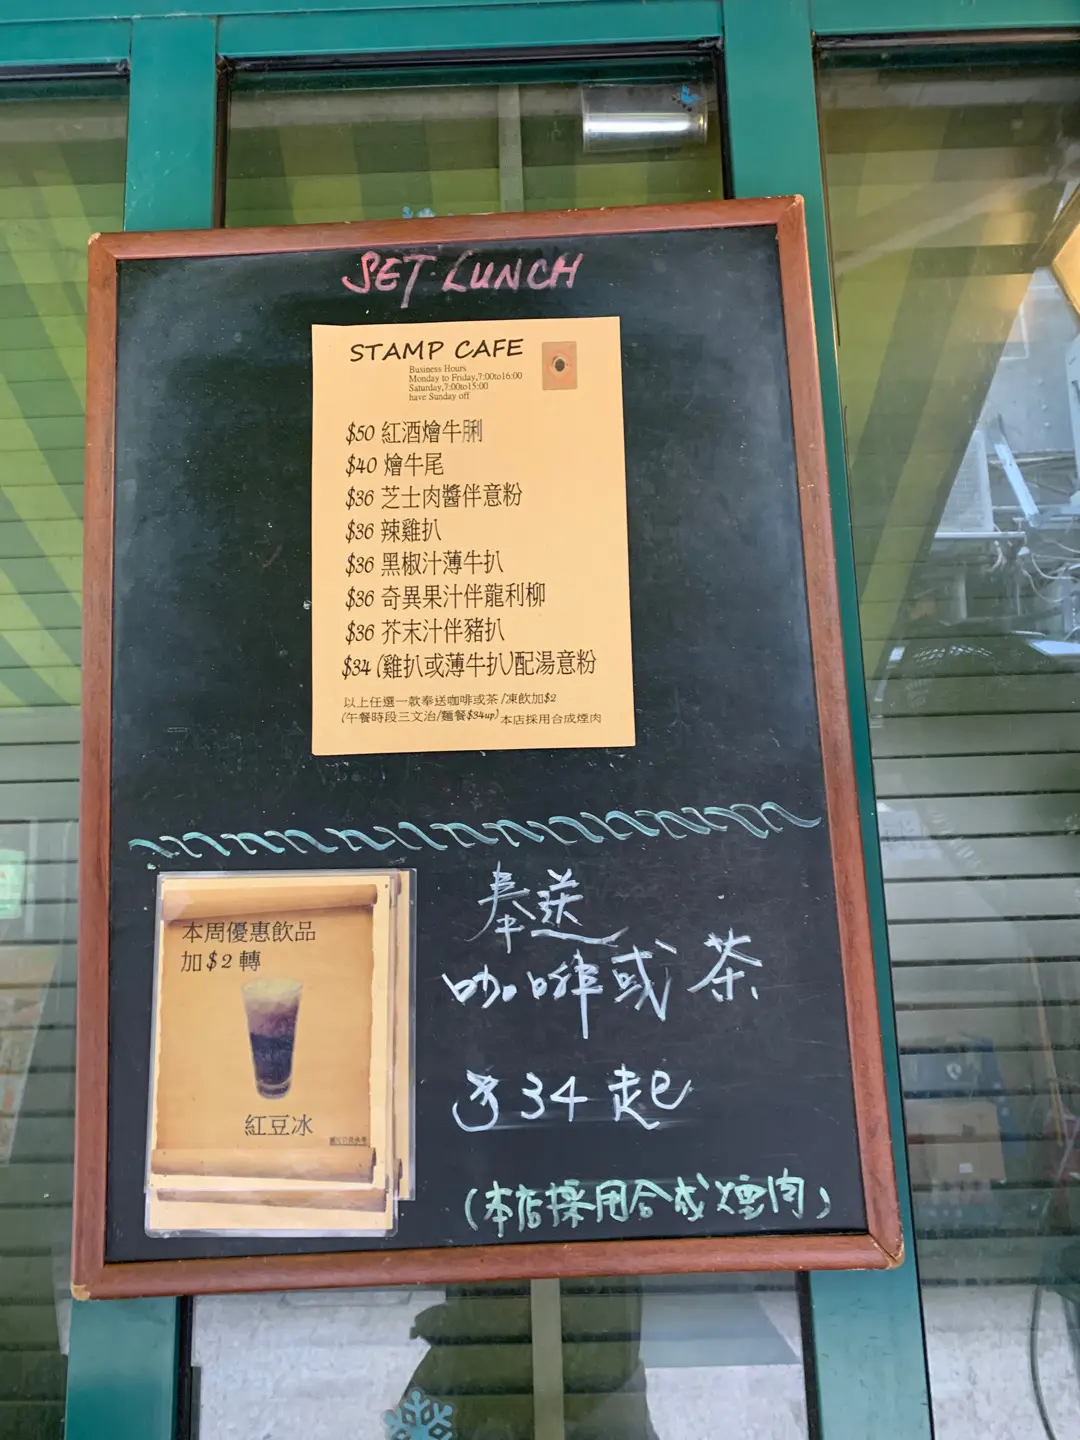 SET LUNCH
STAMP CAFE
Business Hours
Monday to Friday,7:00to16:00
Saturday,7:00to15:00
have Sunday off
$50 紅酒燴牛脷
$40 燴牛尾
$36 芝士肉醬伴意粉
$36 辣雞扒
$36 黑椒汁薄牛扒
$36 奇異果汁伴龍利柳
$36 芥末汁伴豬扒
$34 (雞扒或薄牛扒)配湯意粉
以上任選一款奉送咖啡或茶/凍飲加$2
(午餐時段三文治/麵餐$34up) 本店採用合成煙肉
本周優惠飲品
加$2轉
紅豆冰
奉送
咖啡或茶
$34起
(本店採用合成煙肉)